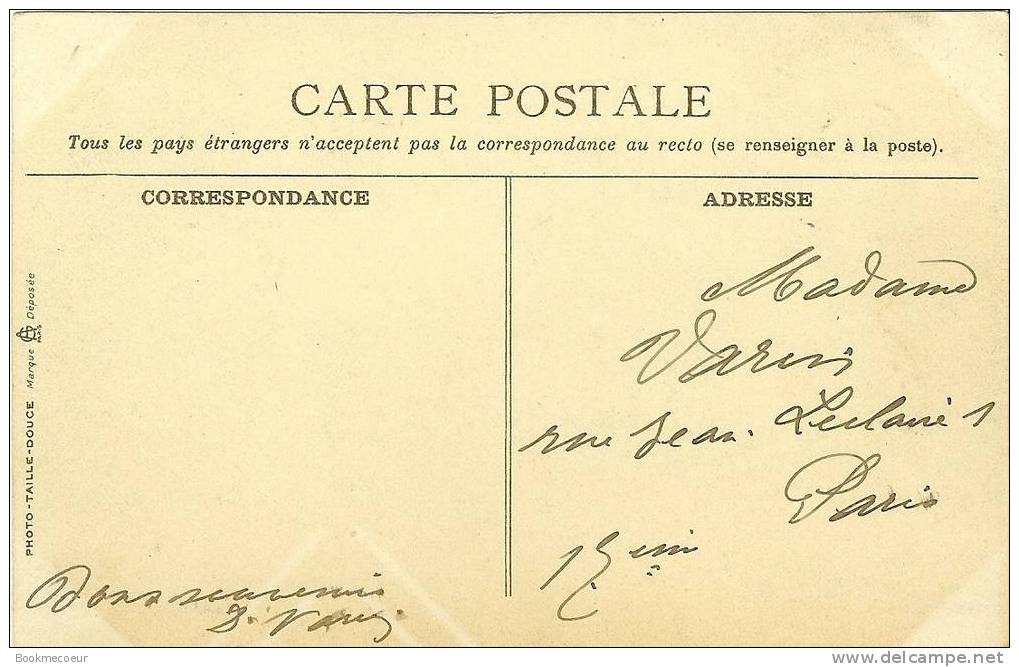 CARTE POSTALE
Tous les pays étrangers n'acceptent pas la correspondance au recto (se renseigner à la poste).
CORRESPONDANCE
ADRESSE
PHOTO-TAILLE-DOUCE Marque Déposée
Madame
Varin
rue Jean Leclaire 1
Paris
17eme
Bons souvenirs
Bookmecoeur
delcampe.net